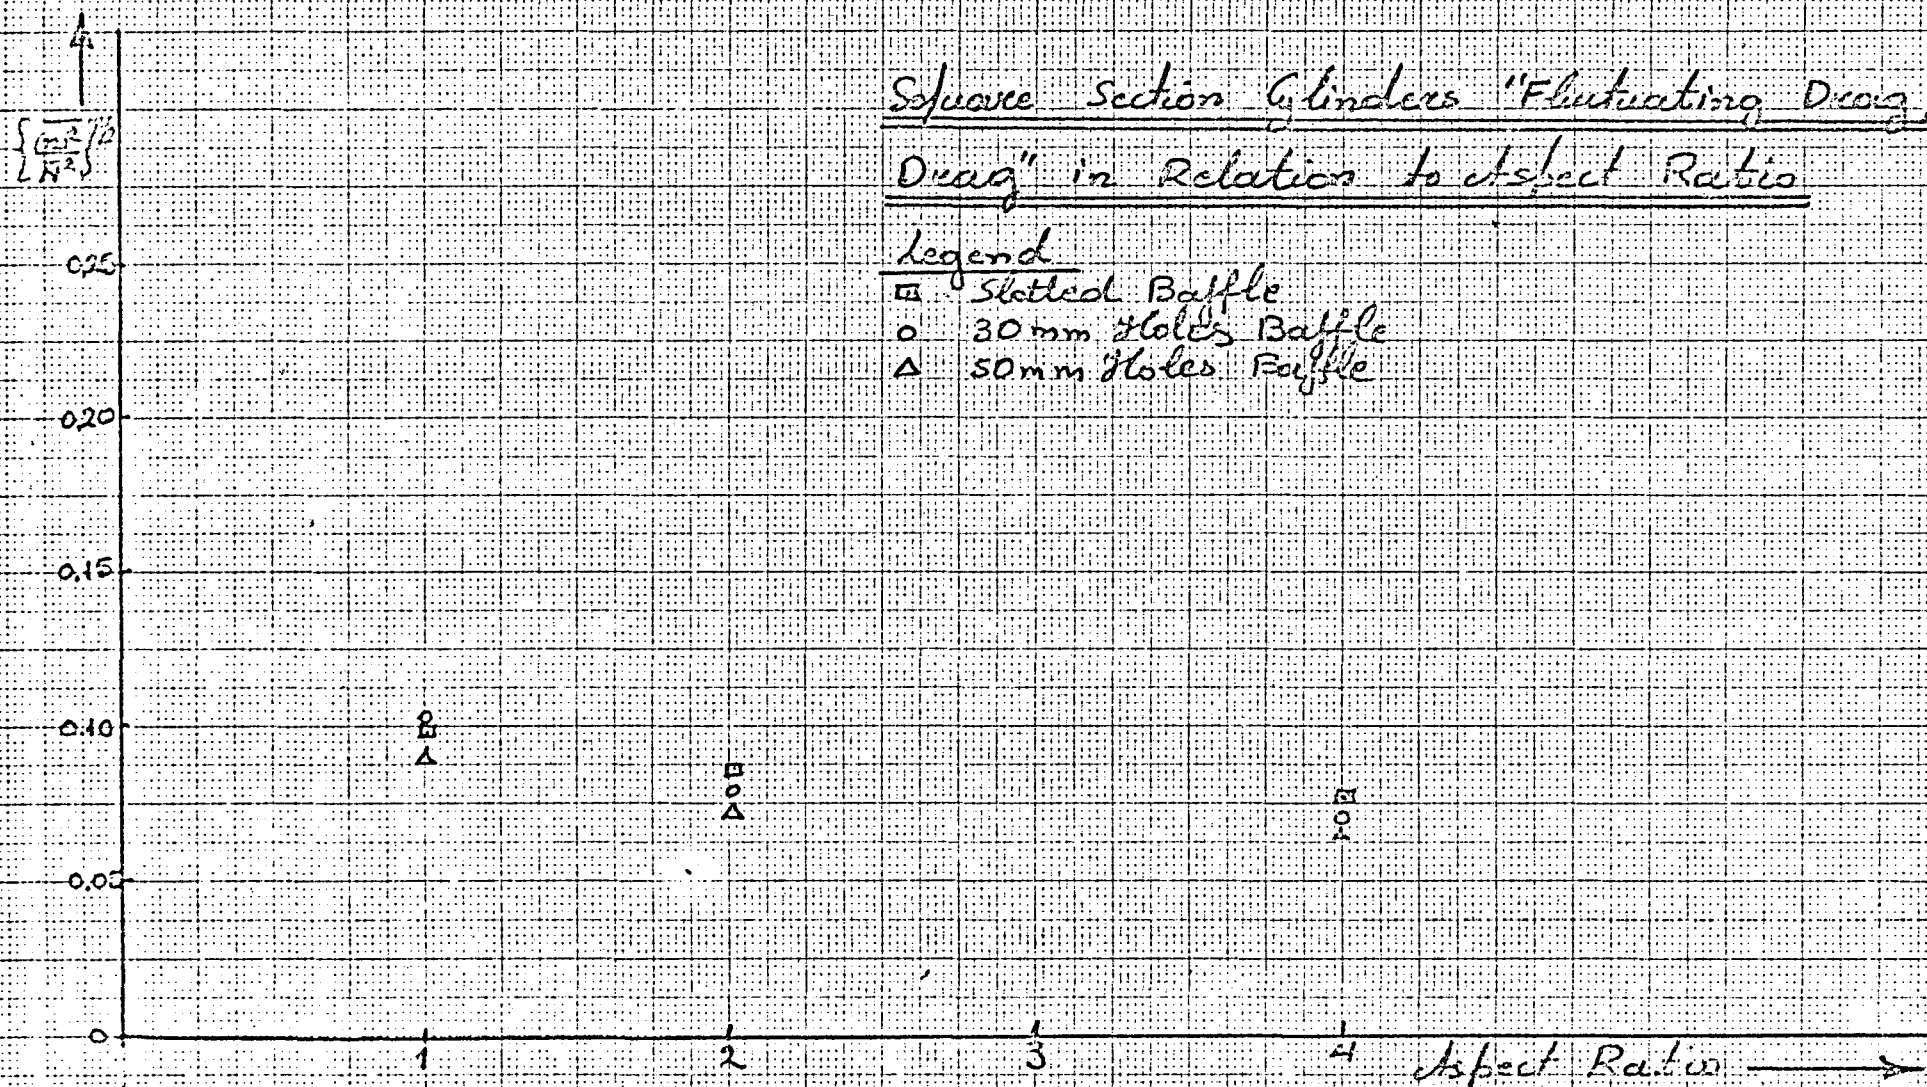 Square Section Cylinders "Fluctuating Drag
Drag" in Relation to Aspect Ratio
Legend
Slotted Baffle
30mm Holes Baffle
50mm Holes Baffle
0.25
0.20
0.15
0.10
0.05
0
1 2 3 4 Aspect Ratio